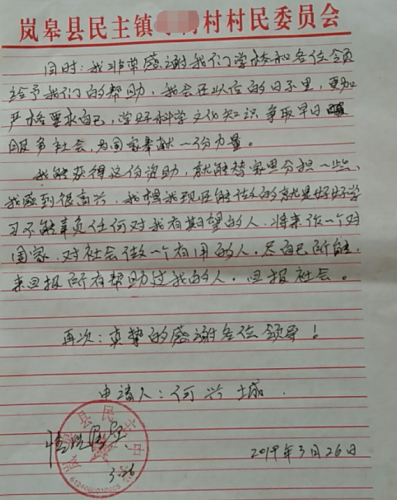 岚皋县民主镇 村村民委员会
同时：我非常感谢我们学校和各位领
给予我们的帮助，我会在以后的日子里，更加
严格要求自己，学好科学文化知识 争取早日
服务社会，为国家奉献一份力量。
我能获得这份资助，就能替家里分担一些，
我感到很高兴，我想我现在能做的就是好好学
习不能辜负任何对我有期望的人，将来做一个对
国家、对社会做一个有用的人，尽自己所能，
来回报所有帮助过我的人，回报社会。
再次：真挚的感谢各位领导！
申请人：何兴城
2019年3月26日
3.26